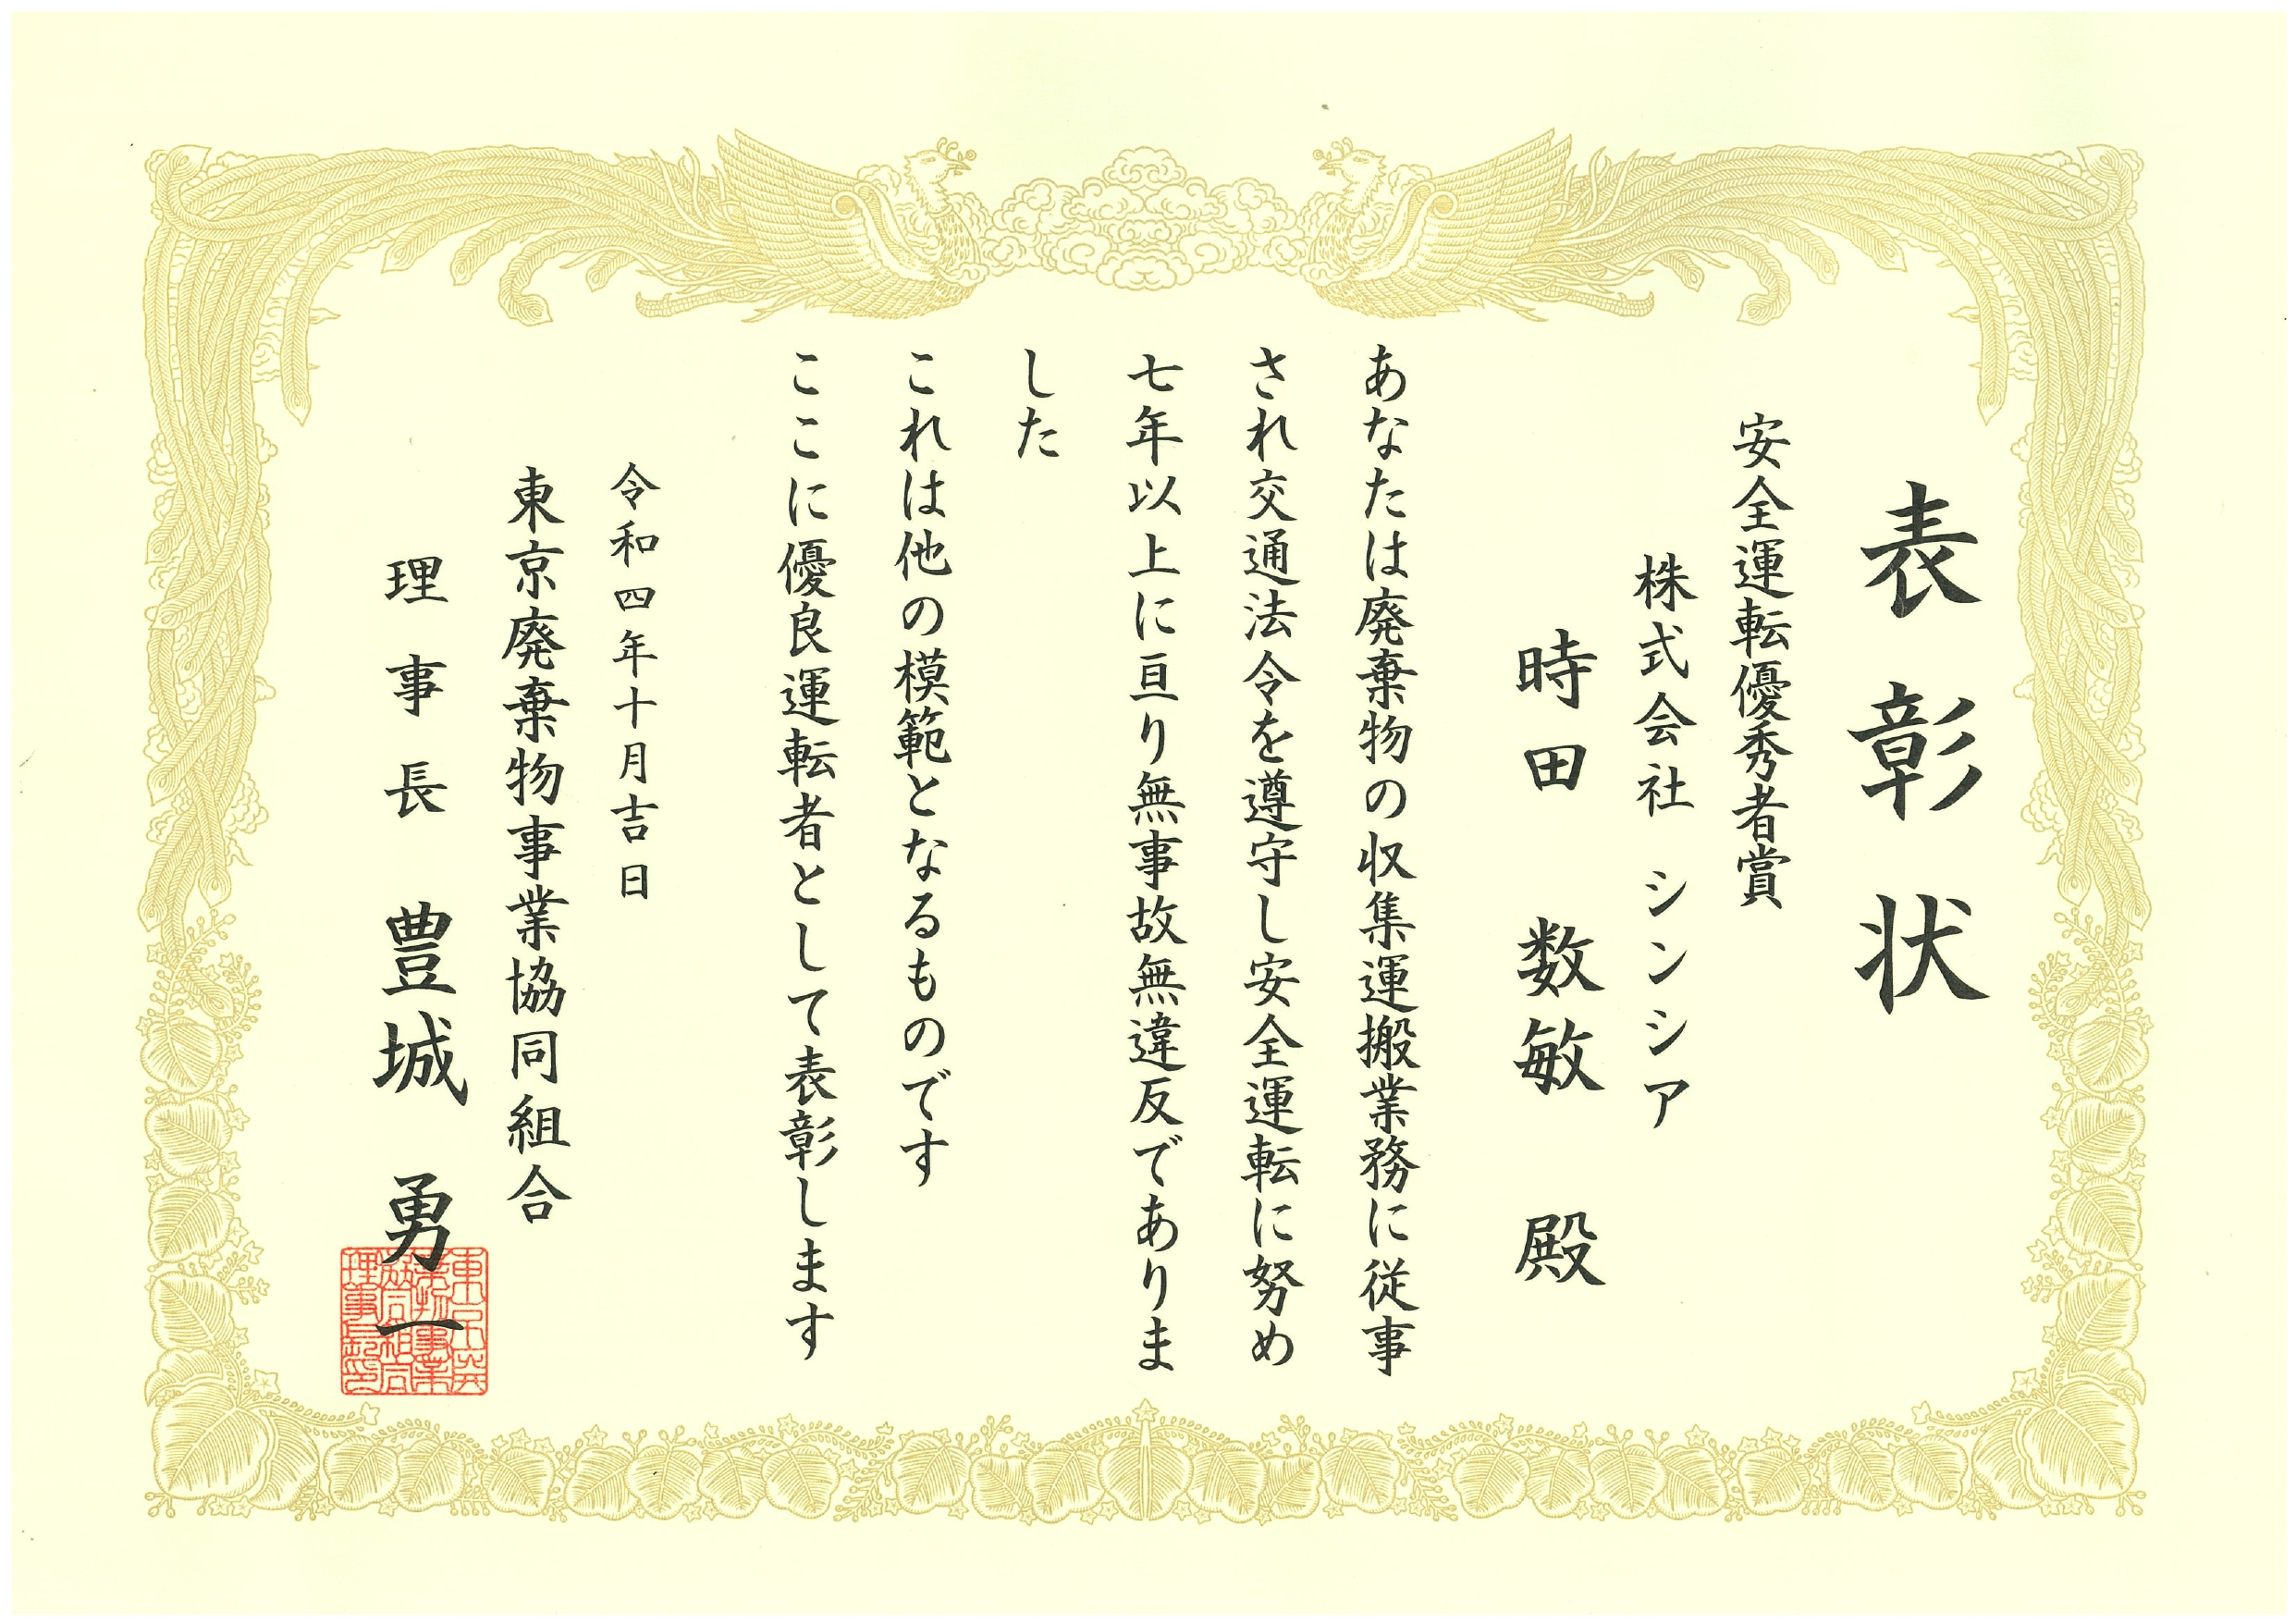 表彰状
安全運転優秀者賞
株式会社 シンシア
時田 数敏 殿
あなたは廃棄物の収集運搬業務に従事
され交通法令を遵守し安全運転に努め
七年以上に亘り無事故無違反でありま
した
これは他の模範となるものです
ここに優良運転者として表彰します
令和四年十月吉日
東京廃棄物事業協同組合
理事長 豊城 勇一